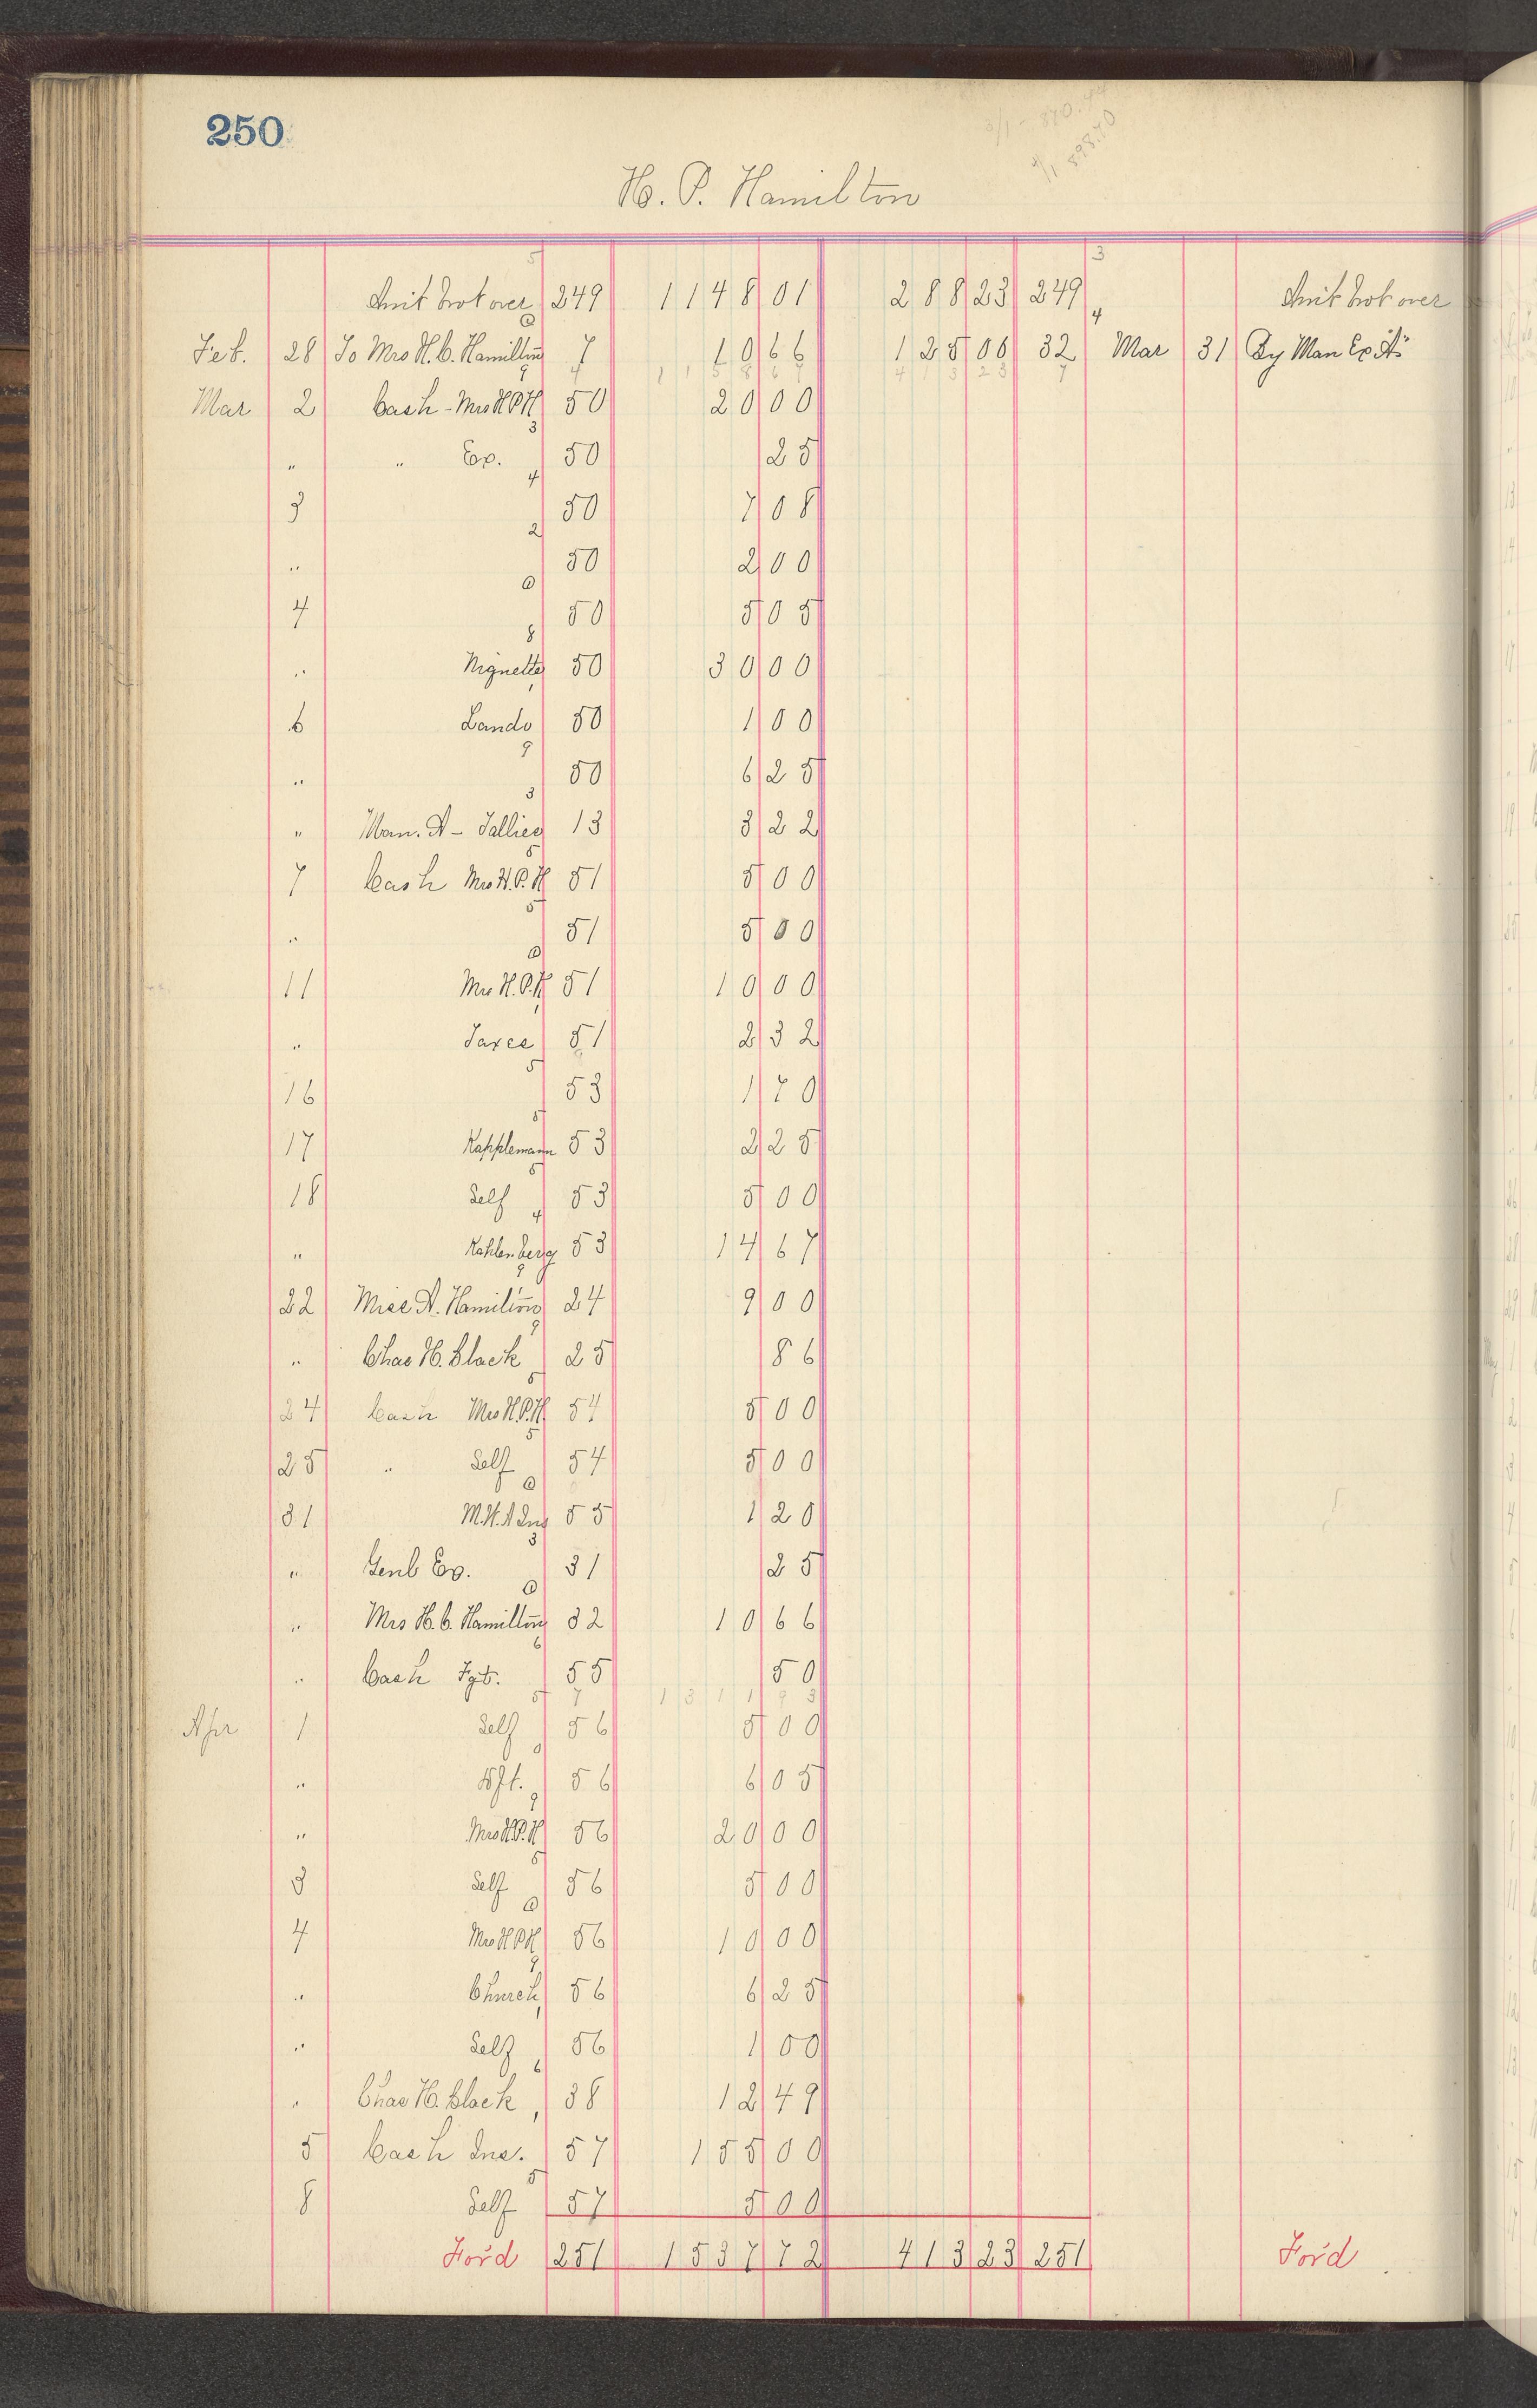 250
H. P. Hamilton
Amt brot over 249 1148 01 288 23 249 Amt brot over
Feb. 28 To Mrs H. C. Hamilton 7 10 66 125 00 32 Mar 31 By Man Ex A/c
1158 67 413 23
Mar 2 Cash - Mrs HPH 50 20 00
" " Exp. 50 25
3 50 7 08
" 50 2 00
4 50 5 05
" Vignettes 50 30 00
6 Lando 50 1 00
" 50 6 25
" Man. A - Tallies 13 3 22
7 Cash Mrs H.P.H 51 5 00
" 51 5 00
11 Mrs H.P.H 51 10 00
" Taxes 51 2 32
16 53 1 70
17 Kapplemann 53 2 25
18 Self 53 5 00
" Kahlenberg 53 14 67
22 Miss A. Hamilton 24 9 00
" Chas H. Black 25 86
24 Cash Mrs H.P.H 54 5 00
25 " Self 54 5 00
31 55 1 20
" Genl Exp. 31 25
" Mrs H. C. Hamilton 32 10 66
" Cash Fgt. 55 50
Apr 1 Self 56 5 00
" 56 6 05
" Mrs H.P.H 56 20 00
3 Self 56 5 00
4 Mrs HPH 56 10 00
" Church 56 6 25
" Self 56 1 00
" Chas H. Black 38 12 49
5 Cash Ins. 57 155 00
8 Self 57 5 00
Ford 251 1537 72 413 23 251 Ford